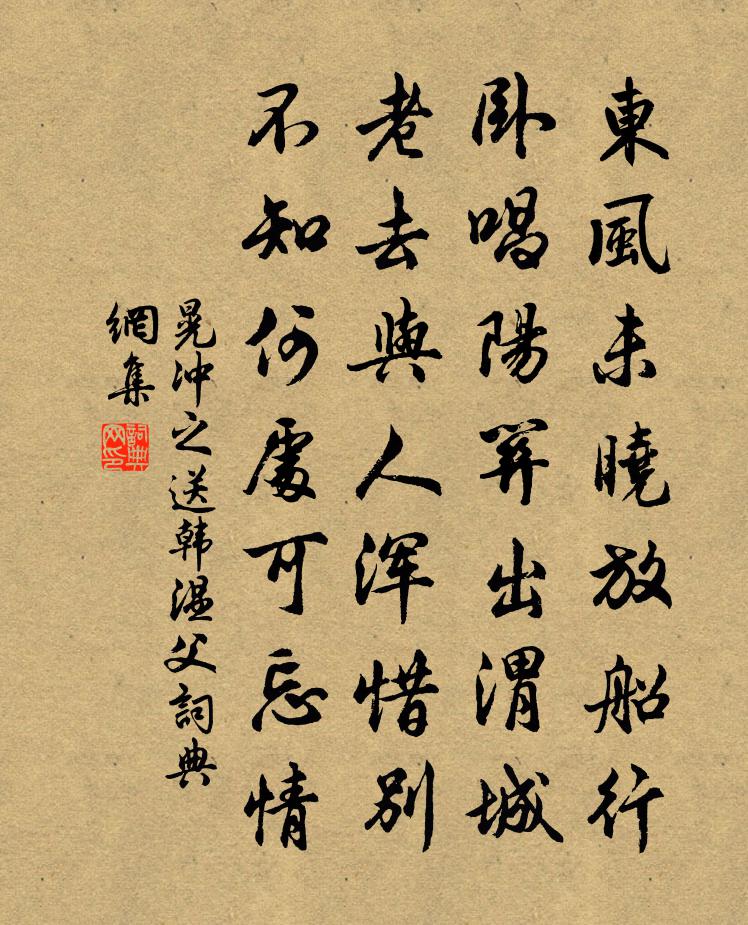 東風未曉放船行
卧唱陽關出渭城
老去與人浑惜別
不知何處可忘情
晁冲之送韩温父詞典
網集
詞典
网印